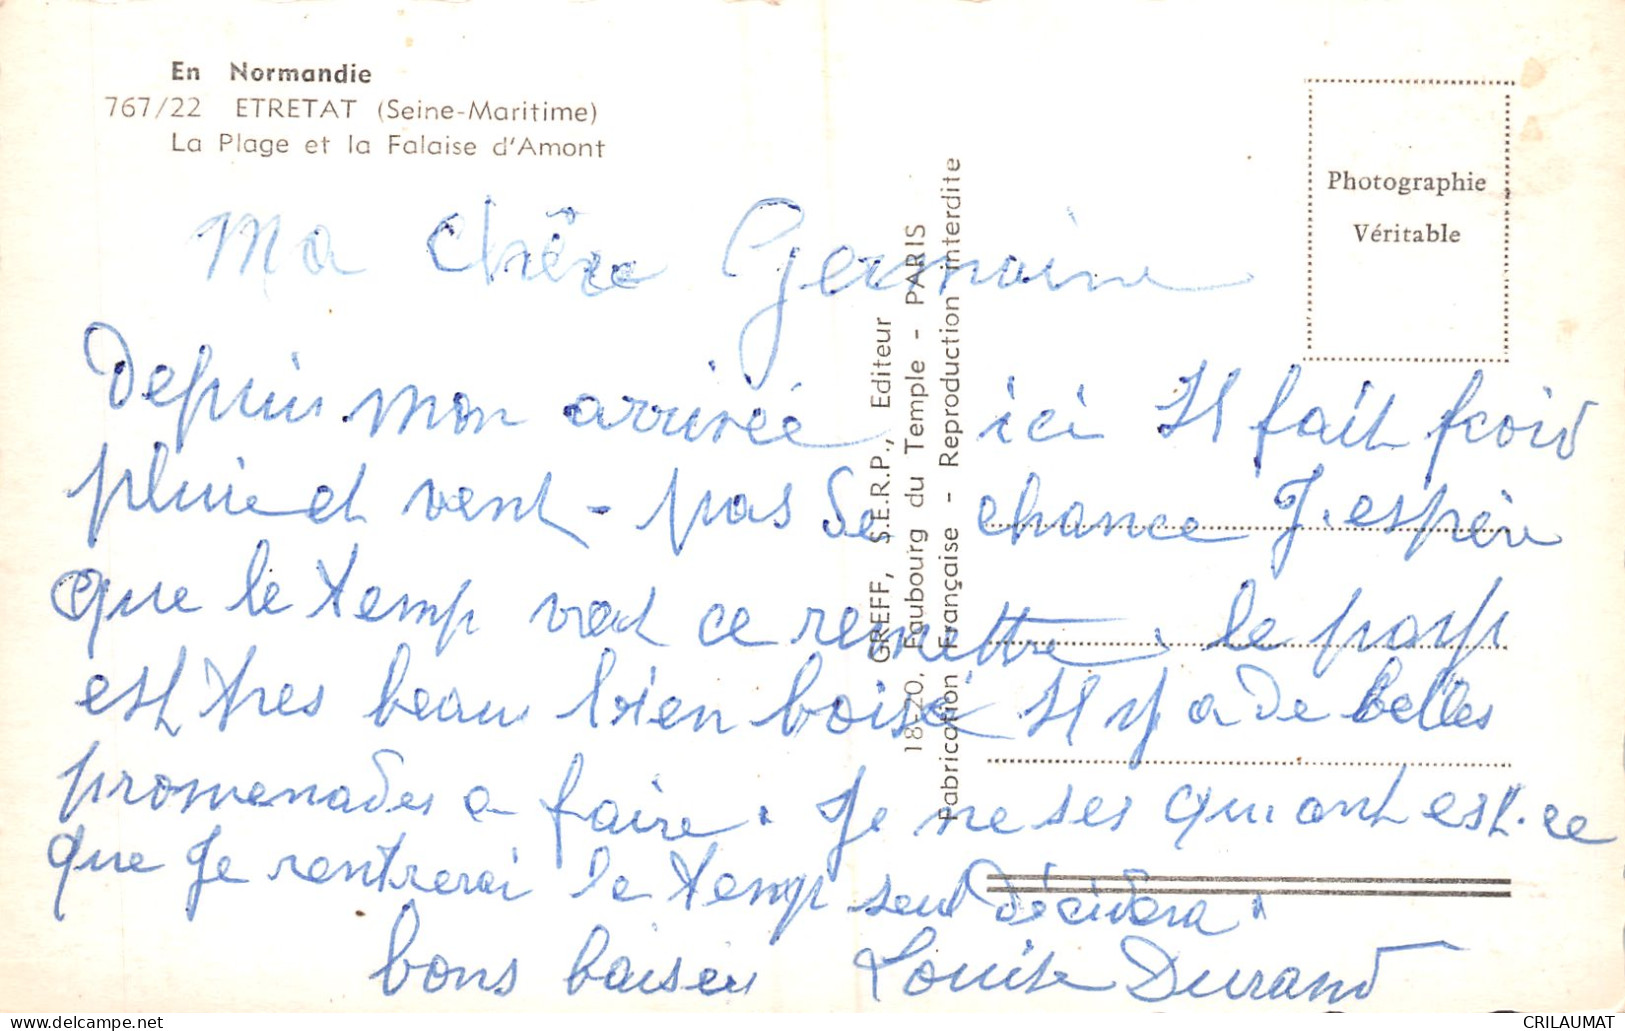 En Normandie
767/22 ETRETAT (Seine-Maritime)
La Plage et la Falaise d'Amont
Photographie
Véritable
GREFF, S.E.R.P., Editeur
18-20, Faubourg du Temple - PARIS
Fabrication Française - Reproduction interdite
Ma chère Germaine
Depuis mon arrivée ici Il fait froid
pluie et vent - pas de chance J'espère
que le temp vat ce remettre. le payp
est tres beau bien boisé Il y a de belles
promenades a faire. Je ne ses quant est-ce
que Je rentrerai le temp seul décidera.
bons baises Louise Durand
CRILAUMAT